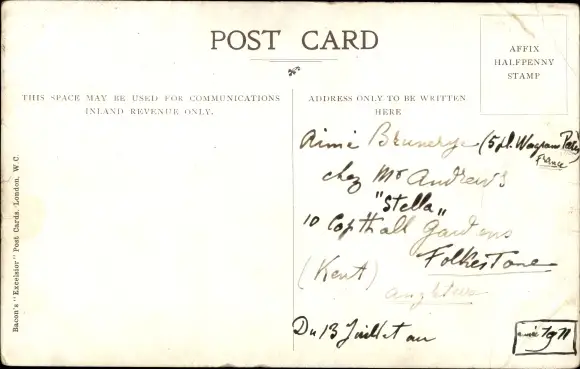 POST CARD
AFFIX
HALFPENNY
STAMP
THIS SPACE MAY BE USED FOR COMMUNICATIONS
INLAND REVENUE ONLY.
ADDRESS ONLY TO BE WRITTEN
HERE
Aimé (5 pl. Wagram Paris
France
chez Mr Andrews
"Stella"
10 Copthall Gardens
Folkestone
(Kent)
Angleterre
Du 13 Juillet au
1911
Bacon's "Excelsior" Post Cards, London, W.C.